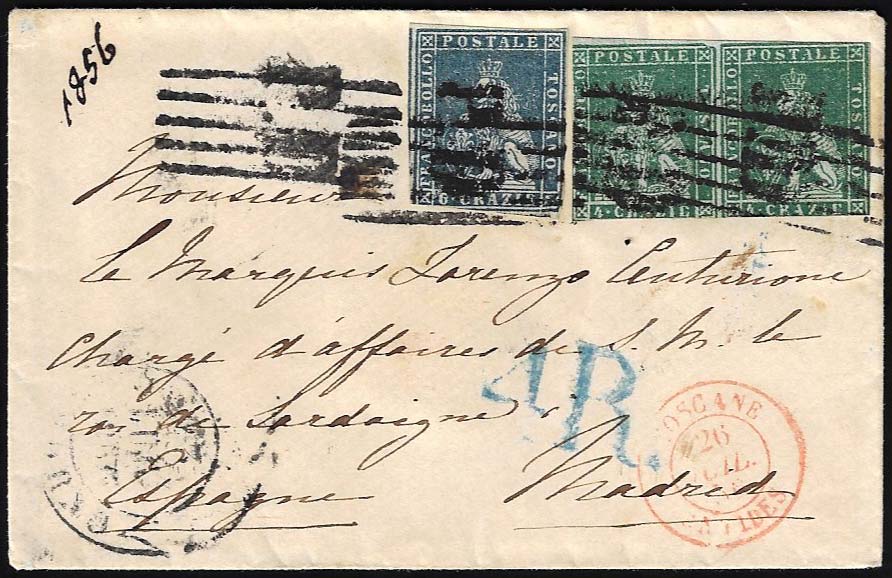 1856
POSTALE POSTALE POSTALE
FRANCOBOLLO TOSCANO FRANCOBOLLO TOSCANO
6·CRAZIE 4·CRAZIE 4·CRAZIE
Monsieur
Le Marquis Lorenzo Centurione
Chargé d'affaires de S. M. le
roi de Sardaigne
4R.
TOSCANE
26
JUIL.
Espagne Madrid